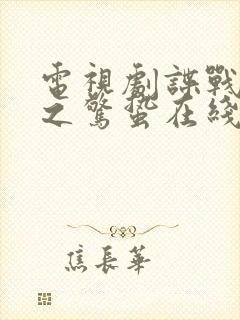 電視劇諜戰
之驚蟄在綫
焦長華